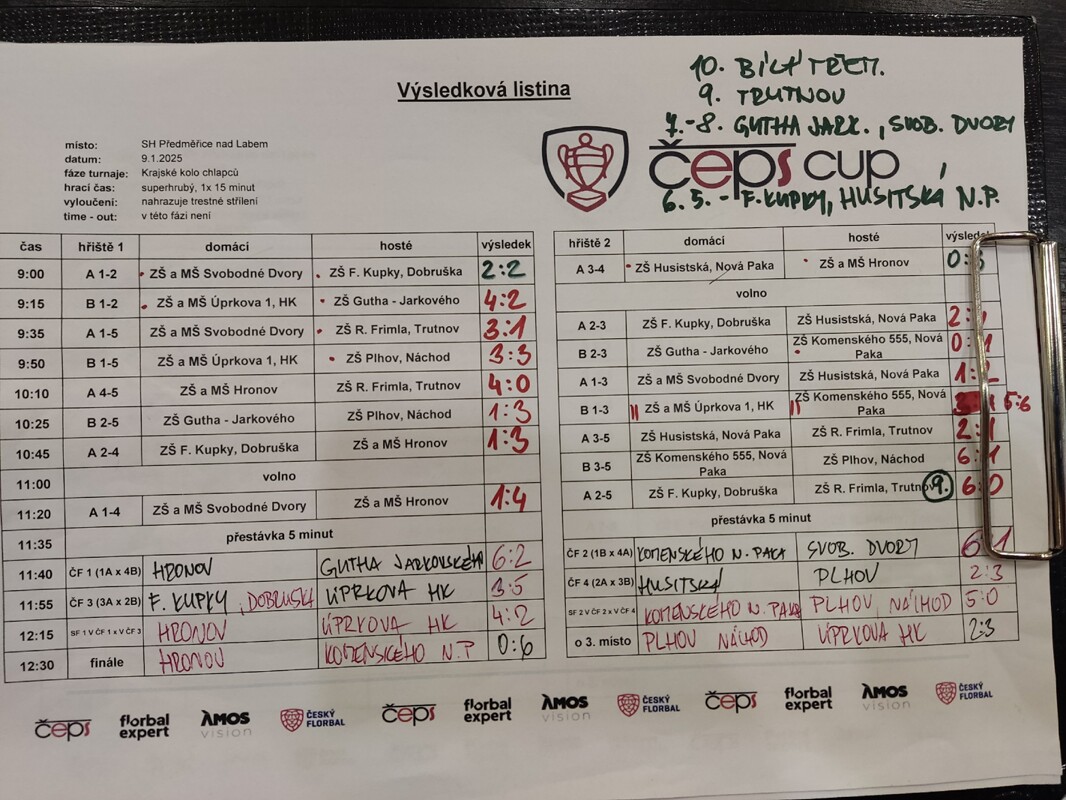 10. BÍLÝ TŘEM.
9. TRUTNOV
Výsledková listina
7.-8. GUTHA JARK., SVOB. DVORY
čeps cup
6. 5. - F. KUPKY, HUSITSKÁ N.P.
místo: SH Předměřice nad Labem
datum: 9.1.2025
fáze turnaje: Krajské kolo chlapců
hrací čas: superhrubý, 1x 15 minut
vyloučení: nahrazuje trestné střílení
time - out: v této fázi není
čas hřiště 1 domácí hosté výsledek
9:00 A 1-2 ZŠ a MŠ Svobodné Dvory ZŠ F. Kupky, Dobruška 2:2
9:15 B 1-2 ZŠ a MŠ Úprkova 1, HK ZŠ Gutha - Jarkového 4:2
9:35 A 1-5 ZŠ a MŠ Svobodné Dvory ZŠ R. Frimla, Trutnov 3:1
9:50 B 1-5 ZŠ a MŠ Úprkova 1, HK ZŠ Plhov, Náchod 3:3
10:10 A 4-5 ZŠ a MŠ Hronov ZŠ R. Frimla, Trutnov 4:0
10:25 B 2-5 ZŠ Gutha - Jarkového ZŠ Plhov, Náchod 1:3
10:45 A 2-4 ZŠ F. Kupky, Dobruška ZŠ a MŠ Hronov 1:3
11:00 volno
11:20 A 1-4 ZŠ a MŠ Svobodné Dvory ZŠ a MŠ Hronov 1:4
11:35 přestávka 5 minut
11:40 ČF 1 (1A x 4B) HRONOV GUTHA JARKOVSKÉHO 6:2
11:55 ČF 3 (3A x 2B) F. KUPKY, DOBRUSKA ÚPRKOVA HK 3:5
12:15 SF 1 V ČF 1 x V ČF 3 HRONOV ÚPRKOVA HK 4:2
12:30 finále HRONOV KOMENSKÉHO N.P 0:6
hřiště 2 domácí hosté výsledek
A 3-4 ZŠ Husistská, Nová Paka ZŠ a MŠ Hronov 0:
volno
A 2-3 ZŠ F. Kupky, Dobruška ZŠ Husistská, Nová Paka 2:1
B 2-3 ZŠ Gutha - Jarkového ZŠ Komenského 555, Nová
Paka 0:1
A 1-3 ZŠ a MŠ Svobodné Dvory ZŠ Husistská, Nová Paka 1:2
B 1-3 ZŠ a MŠ Úprkova 1, HK ZŠ Komenského 555, Nová
Paka 5:6
A 3-5 ZŠ Husistská, Nová Paka ZŠ R. Frimla, Trutnov 2:1
B 3-5 ZŠ Komenského 555, Nová
Paka ZŠ Plhov, Náchod 6:1
A 2-5 ZŠ F. Kupky, Dobruška ZŠ R. Frimla, Trutnov 9. 6:0
přestávka 5 minut
ČF 2 (1B x 4A) KOMENSKÉHO N. PAKA SVOB. DVORY 6:1
ČF 4 (2A x 3B) HUSITSKÁ PLHOV 2:3
SF 2 V ČF 2 x V ČF 4 KOMENSKÉHO N. PAKA PLHOV, NÁCHOD 5:0
o 3. místo PLHOV NÁCHOD ÚPRKOVA HK 2:3
čeps florbal expert ÁMOS vision ČESKÝ FLORBAL čeps florbal expert ÁMOS vision ČESKÝ FLORBAL čeps florbal expert ÁMOS vision ČESKÝ FLORBAL